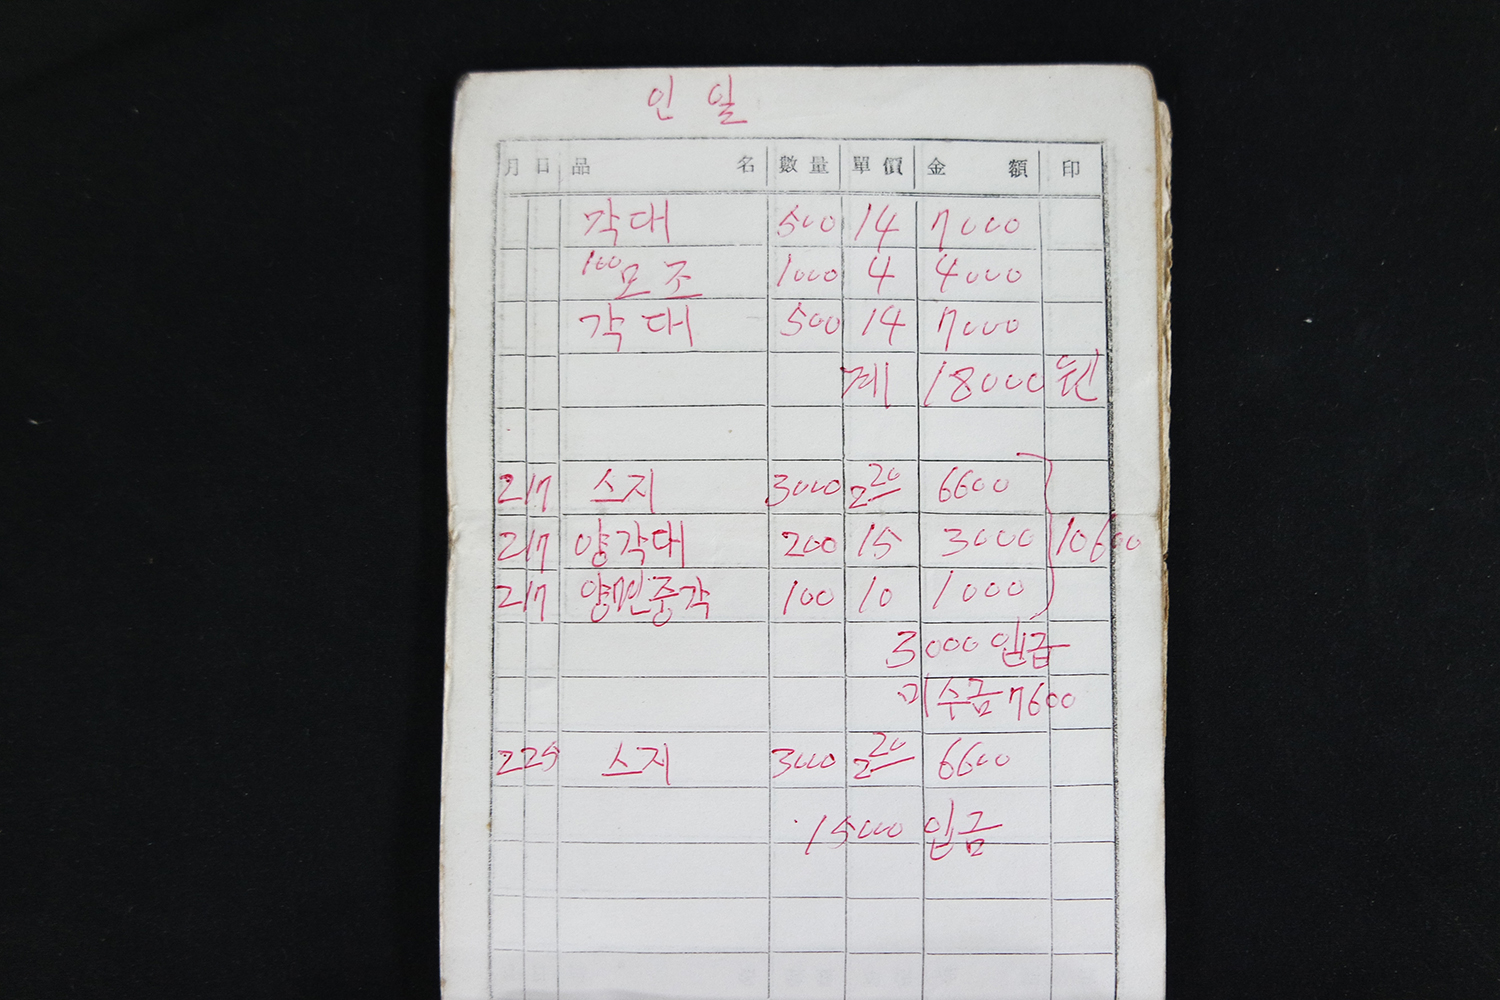 인 일
月 日 品 名 數量 單價 金 額 印
각대 500 14 7000
100 모조 1000 4 4000
각대 500 14 7000
계 18000 원
2 17 스지 3000 2 20 6600
2 17 양각대 200 15 3000 10600
2 17 양면중각 100 10 1000
3000 입금
미수금 7600
2 25 스지 3000 2 20 6600
15000 입금